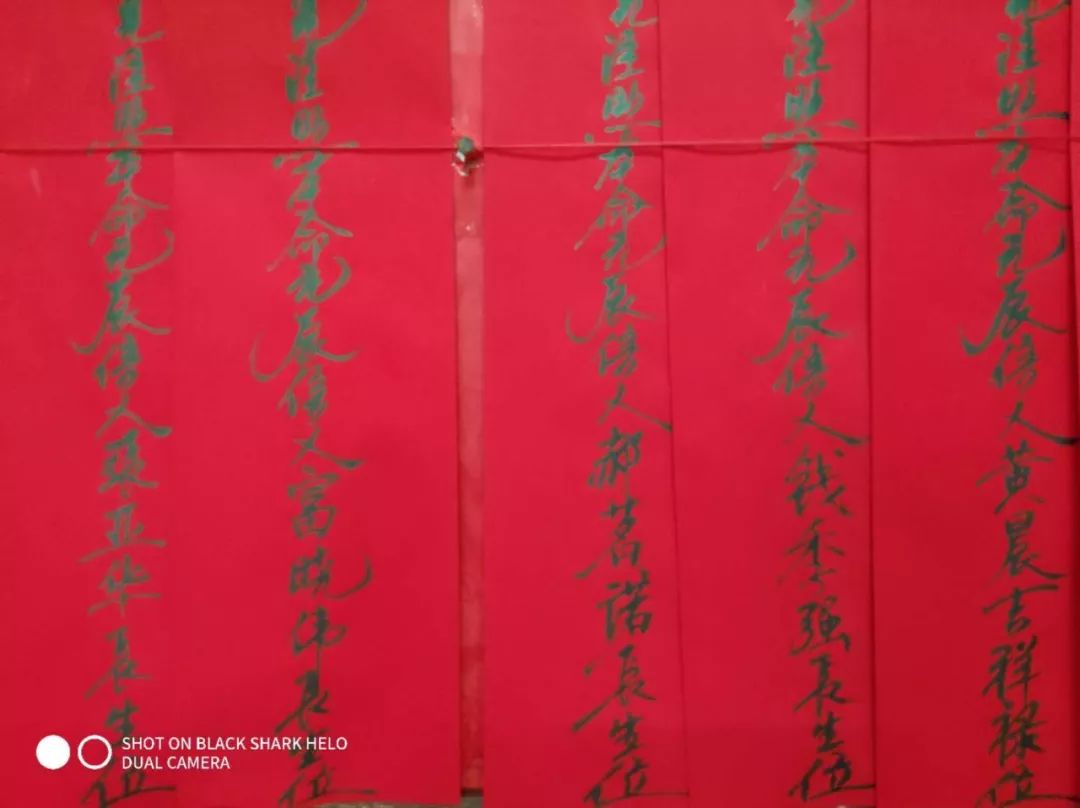 光注照本命元辰信人黄晨吉祥禄位
光注照本命元辰信人钱季强長生位
光注照本命元辰信人郝茗諾長生位
光注照本命元辰信人富晓伟長生位
光注照本命元辰信人張亚华長生位
SHOT ON BLACK SHARK HELO
DUAL CAMERA